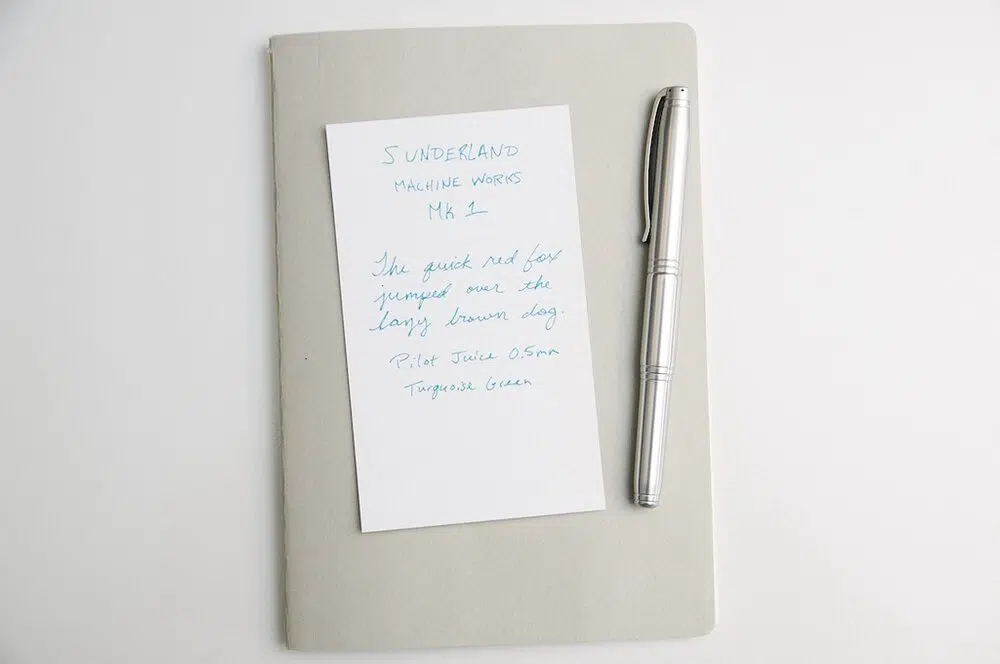 SUNDERLAND
MACHINE WORKS
Mk 1
The quick red fox
jumped over the
lazy brown dog.
Pilot Juice 0.5mm
Turquoise Green